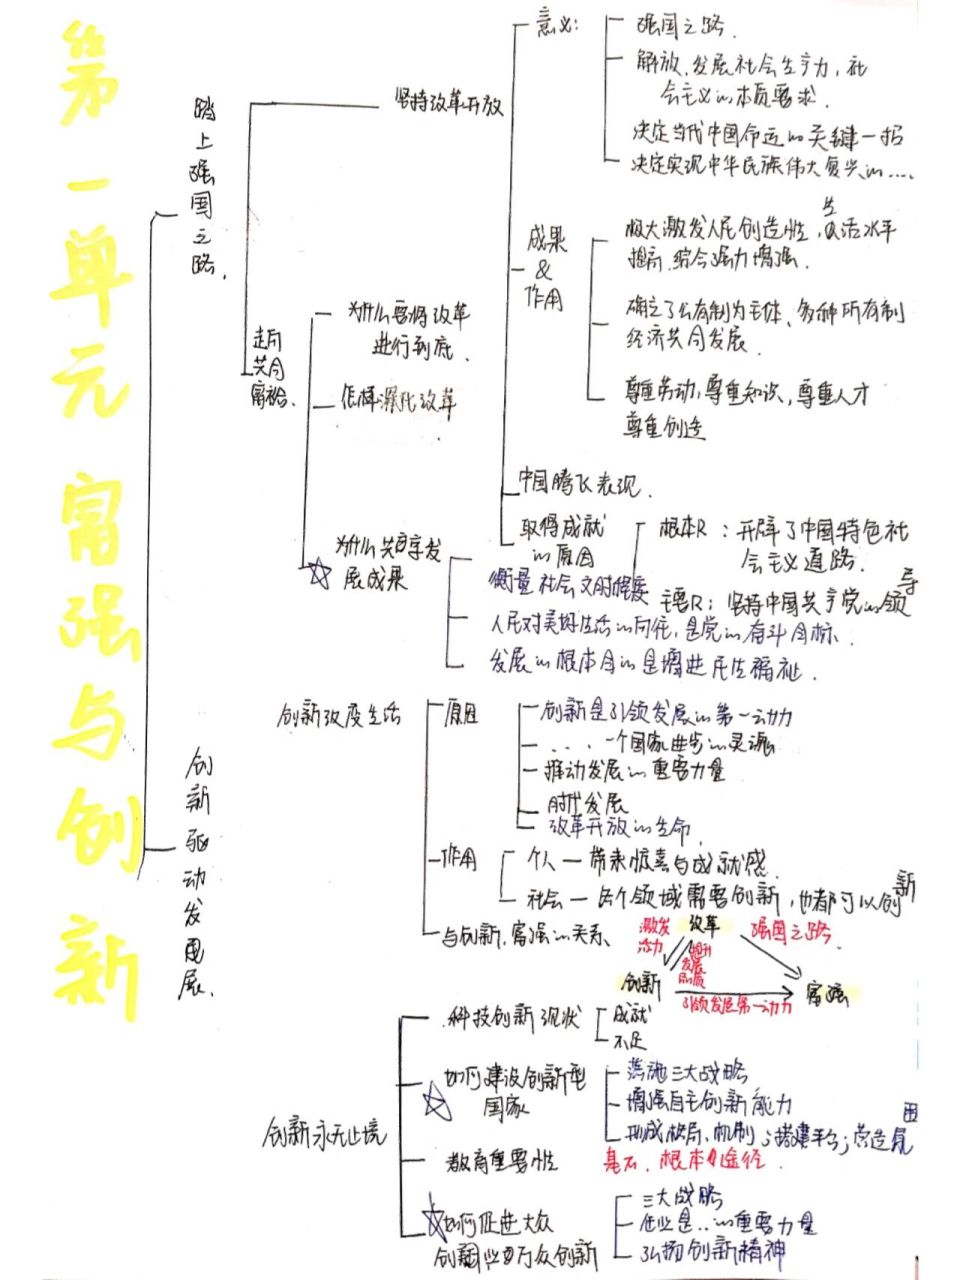 第一单元 富强与创新
踏上强国之路.
坚持改革开放
意义:
强国之路.
解放.发展社会生产力,社
会主义的本质要求.
决定当代中国命运的关键一招
决定实现中华民族伟大复兴的....
成果
&
作用
极大激发人民创造性,生活水平
提高.综合国力增强.
确立了公有制为主体、多种所有制
经济共同发展.
尊重劳动,尊重知识,尊重人才
尊重创造
中国腾飞表现.
取得成就
的原因
根本R:开辟了中国特色社
会主义道路.
主要R:坚持中国共产党的领导
走向
共同
富裕.
为什么要将改革
进行到底.
怎样深化改革
为什么共享发
展成果
衡量社会文明程度
人民对美好生活的向往,是党的奋斗目标.
发展的根本目的是增进民生福祉.
创新驱动发展.
创新改变生活
原因
创新是引领发展的第一动力
....一个国家进步的灵魂
推动发展的重要力量
时代发展
改革开放的生命
作用
个人—带来惊喜与成就感.
社会—各个领域需要创新,也都可以创新
与创新.富强的关系.
激发
活力
改革
强国之路.
提升
发展
品质
创新
引领发展第一动力
富强
创新永无止境
科技创新现状
成就
不足
如何建设创新型
国家
落实三大战略
增强自主创新能力
形成格局、机制;搭建平台;营造氛围
教育重要性
基石.根本途径.
如何促进大众
创业万众创新
三大战略
企业是..的重要力量
弘扬创新精神